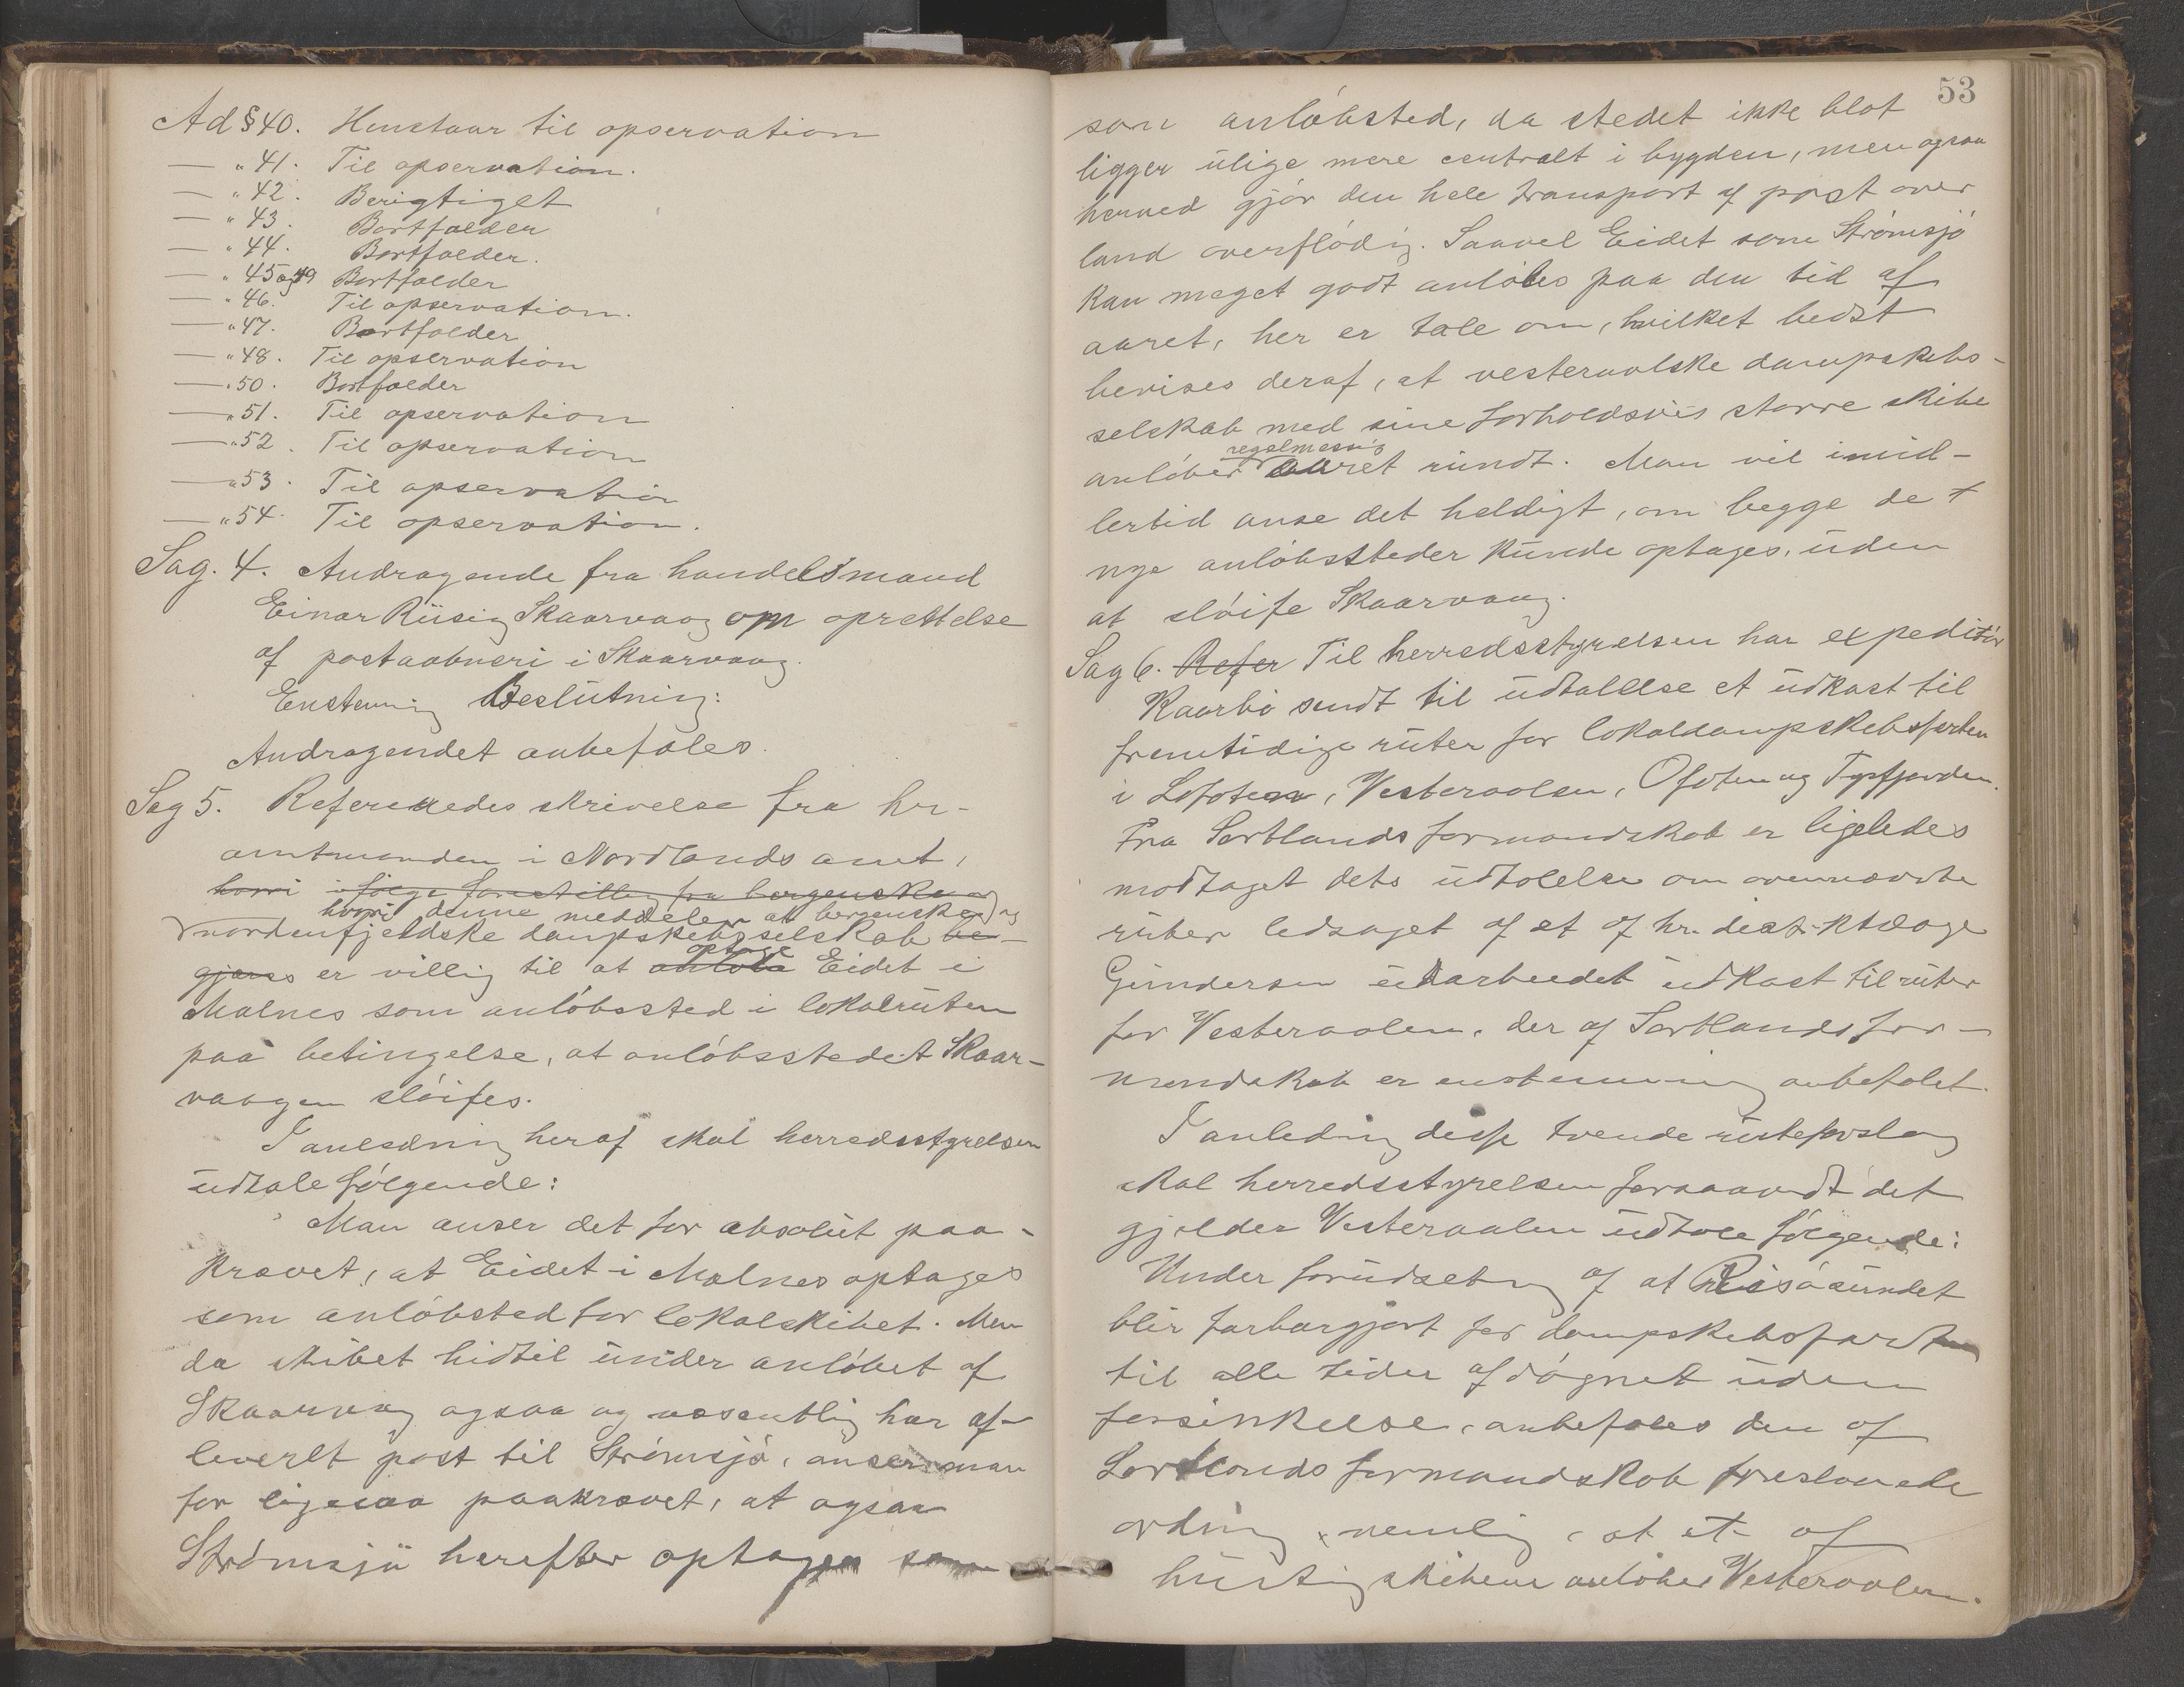 Ad § 40. Henstaar til opservation
— " 41. Til opservation.
— " 42. Berigtiget
— " 43. Bortfalder
— " 44. Bortfalder.
— " 45 og 49 Bortfalder
— " 46. Til opservation.
— " 47. Bortfalder
— " 48. Til opservation
— " 50. Bortfalder
— " 51. Til opservation
— " 52. Til opservation
— " 53. Til opservation
— " 54. Til opservation.
Sag. 4. Andragende fra handelsmand
Einar Riising Skaarvaag om oprettelse
af postaabneri i Skaarvaag.
Enstemmig Beslutning:
Andragendet anbefales.
Sag 5. Refereredes skrivelse fra hr-
amtmanden i Nordlands amt,
hvori ifølge forestilling fra bergenske og
hvori denne meddeler at bergenske og
nordenfjeldske dampskebsselskab be-
gjæres er villig til at anløbe optage Eidet i
Malnes som anløbssted i lokalruten
paa betingelse, at anløbsstedet Skaar-
vaagen sløifes.
I anledning heraf skal herredsstyrelsen
udtale følgende:
Man anser det for absolut paa-
krævet, at Eidet i Malnes optages
som anløbsted for lokalskibet. Men
da skibet hidtil under anløbet af
Skaarvag ogsaa og væsentlig har af-
leverlt post til Strømsjø, anser man
for ligesaa paakrævet, at ogsaa
Strømsjø herefter optages som
53
som anløbsted, da stedet ikke blot
ligger ulige mere centralt i bygden, men ogsaa
herved gjør den hele transport af post over
land overflødig. Saavel Eidet som Strømsjø
kan meget godt anløbes paa den tid af
aaret, her er tale om, hvilket bedst
bevises deraf, at vesteraalske dampskebs-
selskab med sine forholdsvis større skibe
regelmessig
anløber aaret rundt. Man vil imid-
lertid anse det heldigt, om begge de
nye anløbssteder kunde optages, uden
at sløife Skaarvaag.
Sag 6. Refer Til herredsstyrelsen har expeditør
Kaarbø sendt til udtalelse et udkast til
fremtidige ruter for lokaldampskebsfarten
i Lofoten, Vesteraalen, Ofoten og Tysfjorden.
Fra Sortlands formandskab er ligeledes
modtaget dets udtalelse om ovennævnte
ruter ledsaget af et af hr. distriktslæge
Gundersen udarbeidet udkast til ruter
for Vesteraalen, der af Sortlands for-
mandskab er enstemmig anbefalet.
I anledning disse tvende ruteforslag
skal herredsstyrelsen forsaavidt det
gjelder Vesteraalen udtale følgende:
Under forudsetning af at Risøsundet
blir farbargjort for dampskebsfarten
til alle tider af døgnet uden
forsinkelse, anbefales den af
Sortlands formandskab foreslaaede
ordning, nemlig, at et af
hurtigskibene anløber Vesteraalen.